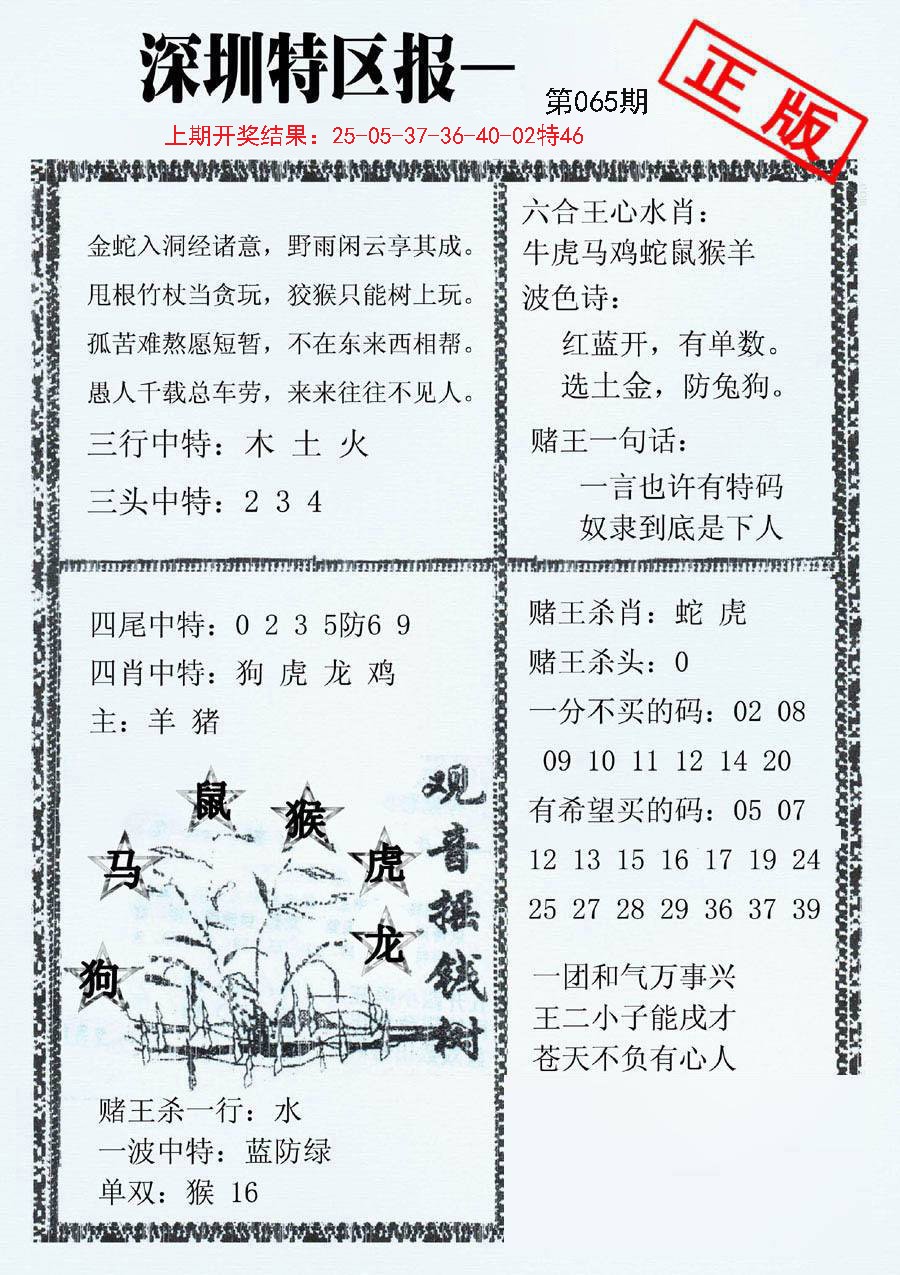 深圳特区报一
第065期
正版
上期开奖结果：25-05-37-36-40-02特46
金蛇入洞经诸意，野雨闲云享其成。
甩根竹杖当贪玩，狡猴只能树上玩。
孤苦难熬愿短暂，不在东来西相帮。
愚人千载总车劳，来来往往不见人。
三行中特：木 土 火
三头中特：2 3 4
六合王心水肖：
牛虎马鸡蛇鼠猴羊
波色诗：
红蓝开，有单数。
选土金，防兔狗。
赌王一句话：
一言也许有特码
奴隶到底是下人
四尾中特：0 2 3 5防6 9
四肖中特：狗 虎 龙 鸡
主：羊 猪
鼠
猴
马
虎
龙
狗
观音摇钱树
赌王杀一行：水
一波中特：蓝防绿
单双：猴 16
赌王杀肖：蛇 虎
赌王杀头：0
一分不买的码：02 08
09 10 11 12 14 20
有希望买的码：05 07
12 13 15 16 17 19 24
25 27 28 29 36 37 39
一团和气万事兴
王二小子能戌才
苍天不负有心人